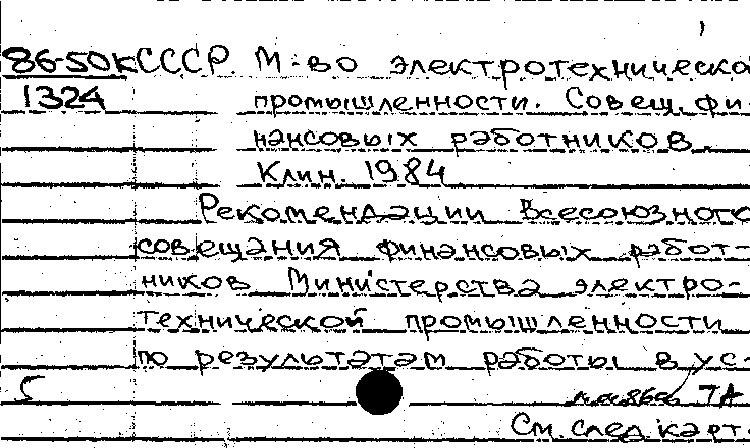 86-50к СССР. М-во электротехническо
1324 промышленности. Совещ. фи
нансовых работников.
Клин. 1984
Рекомендации Всесоюзного
совещания финансовых работ-
ников Министерства электро-
технической промышленности
по результатам работы в ус-
5 7А
См. след. карт.